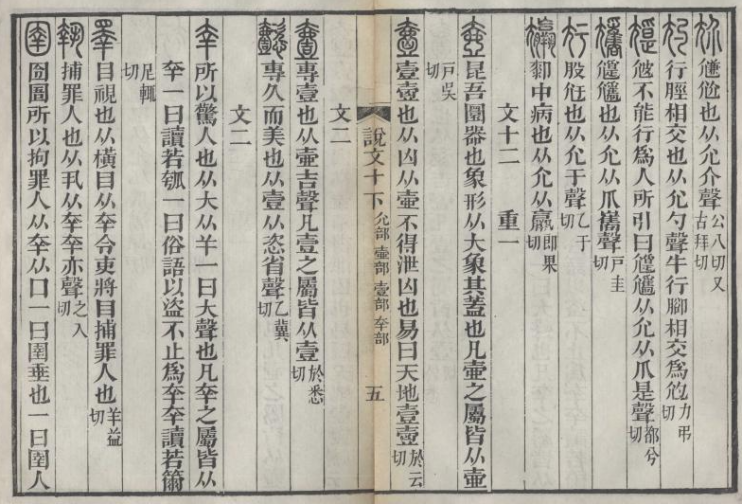 尬尲尬也从尣介聲公八切又古拜切
尥行脛相交也从尣勺聲牛行腳相交爲尥力弔切
𡰢尥不能行爲人所引曰𡰢𡰠从尣从爪是聲都兮切
𡰠𡰢𡰠也从尣从爪巂聲戶圭切
尪股尪也从尣于聲乙于切
𡰡厀中病也从尣从𣎆郎果切
文十二 重一
壺昆吾圜器也象形从大象其蓋也凡壺之屬皆从壺戶吳切
壹壺也从凶从壺不得泄凶也易曰天地壹壺於云切
說文十下 尣部 壺部 壹部 㚔部 五
文二
壹專壹也从壺吉聲凡壹之屬皆从壹於悉切
懿專久而美也从壹从恣省聲乙冀切
文二
㚔所以驚人也从大从𢆉一曰大聲也凡㚔之屬皆从
㚔一曰讀若瓠一曰俗語以盜不止爲㚔㚔讀若籋尼輒切
睪目視也从橫目从㚔令吏將目捕罪人也羊益切
執捕罪人也从丮从㚔㚔亦聲之入切
圉囹圄所以拘罪人从㚔从囗一曰圉垂也一曰圉人